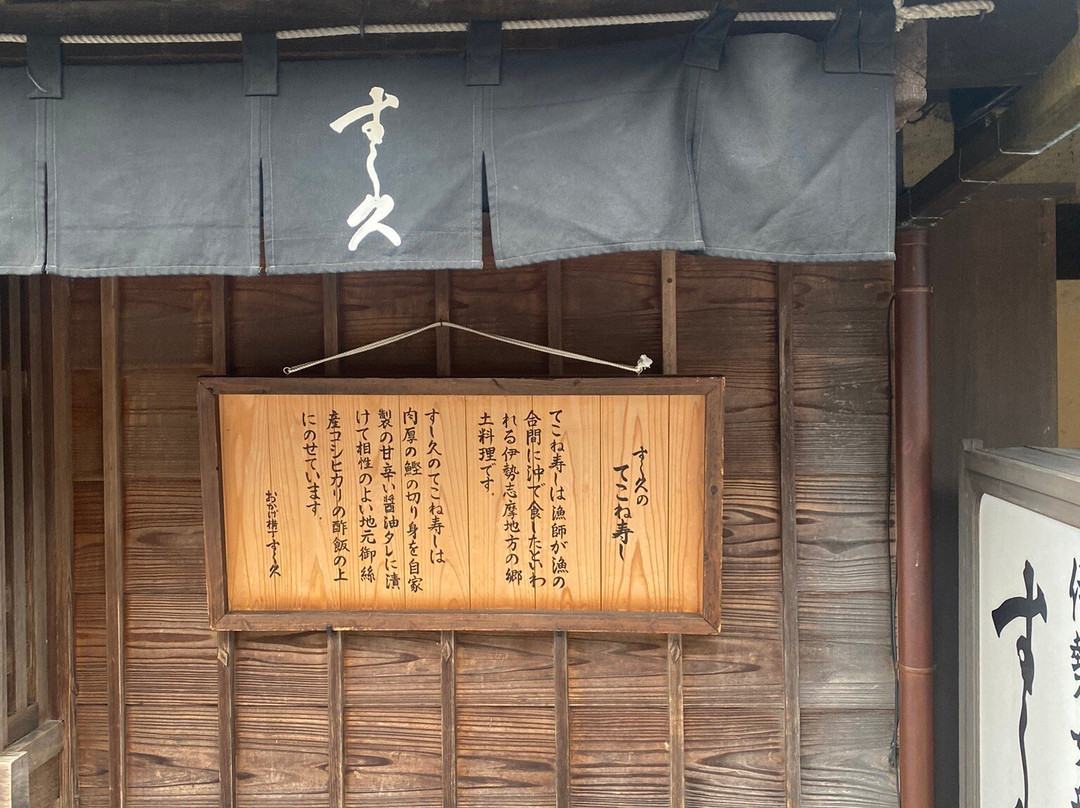 すし久
すし久の
てこね寿し
てこね寿しは漁師が漁の
合間に沖で食したといわ
れる伊勢志摩地方の郷
土料理です。
すし久のてこね寿しは
肉厚の鰹の切り身を自家
製の甘辛い醤油タレに漬
けて相性のよい地元御絲
産コシヒカリの酢飯の上
にのせています。
おかげ横丁すし久
すし